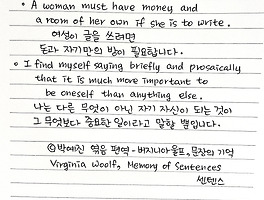 • A woman must have money and
a room of her own if she is to write.
여성이 글을 쓰려면
돈과 자기만의 방이 필요합니다.
• I find myself saying briefly and prosaically
that it is much more important to
be oneself than anything else.
나는 다른 무엇이 아닌 자기 자신이 되는 것이
그 무엇보다 중요한 일이라고 말할 뿐입니다.
ⓒ박예진 엮음 편역 - 버지니아울프, 문장의 기억
Virginia Woolf, Memory of Sentences
센텐스